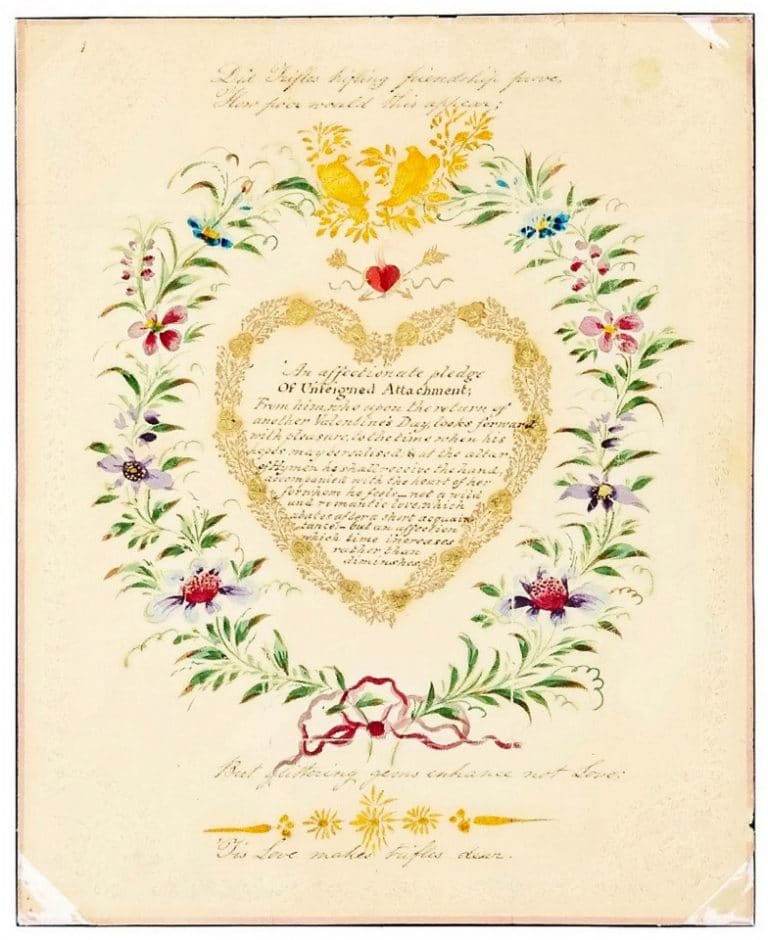 Did Trifles trifling friendship prove,
How poor would this appear;
An affectionate pledge
Of Unfeigned Attachment;
From him, who upon the return of
another Valentine's Day, looks forward
with pleasure, to the time when his
hopes may be realised & at the altar
of Hymen he shall receive the hand,
accompanied with the heart of her
for whom he feels — not a wild
and romantic love, which
abates after a short acquain
tance; — but an affection
which time increases
rather than
diminshes,
But glittering gems enhance not Love:
Tis Love makes trifles dear.